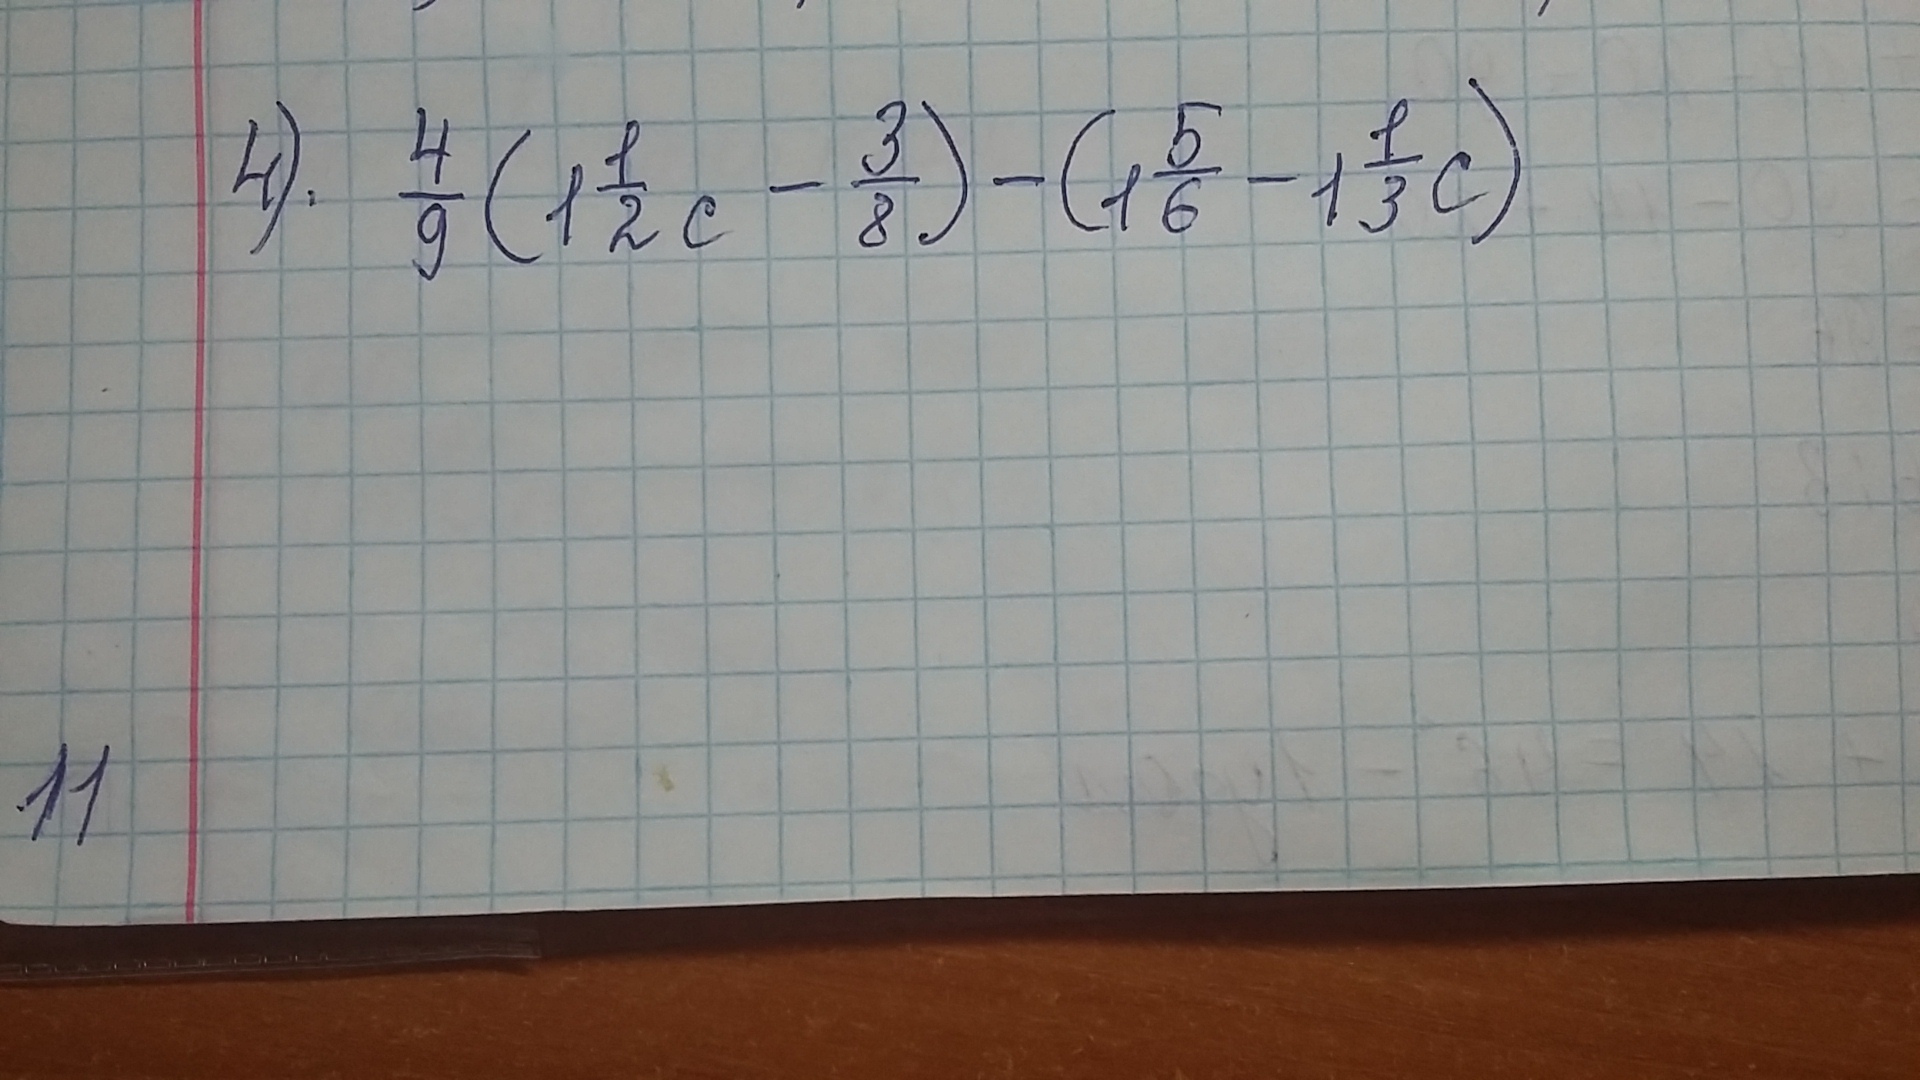 4). 4/9 (1 1/2 c - 3/8) - (1 5/6 - 1 1/3 c)
11